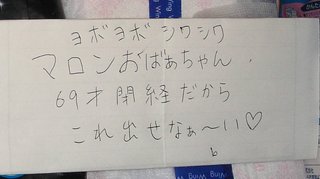 ヨボヨボ シワシワ
マロンおばぁちゃん.
69才閉経だから
これ出せなぁ〜い♡
b
Wing
Wing
Wing